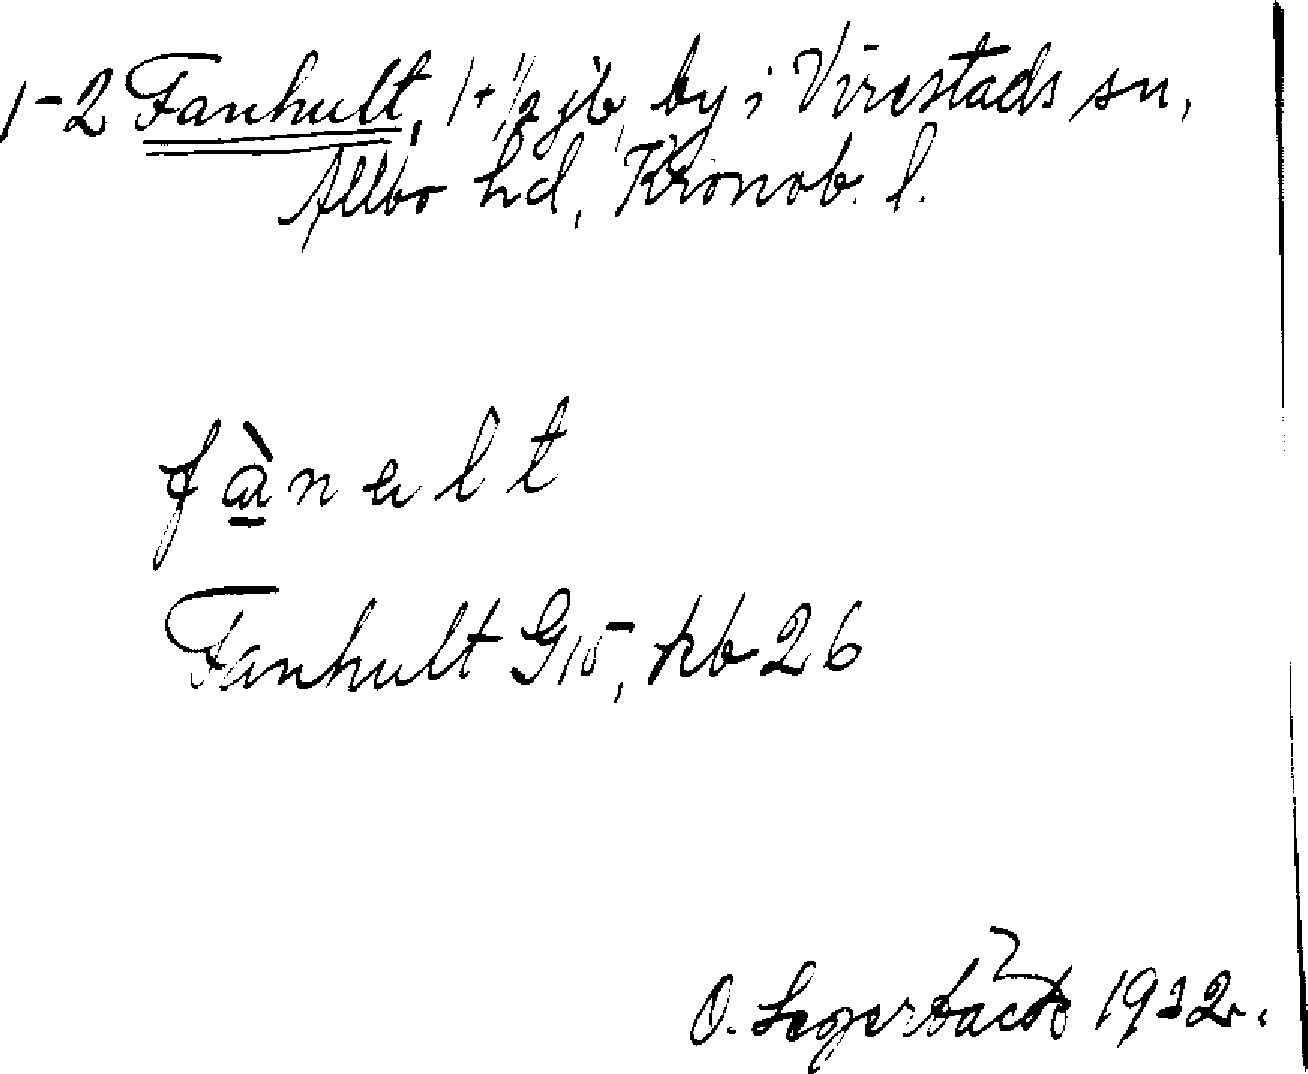 1-2 Fanhult, 1+½ jb, by i Virestads sn,
Allbo hd, Kronob. l.
fànult
Fanhult G15, kb 26
O. 1932.